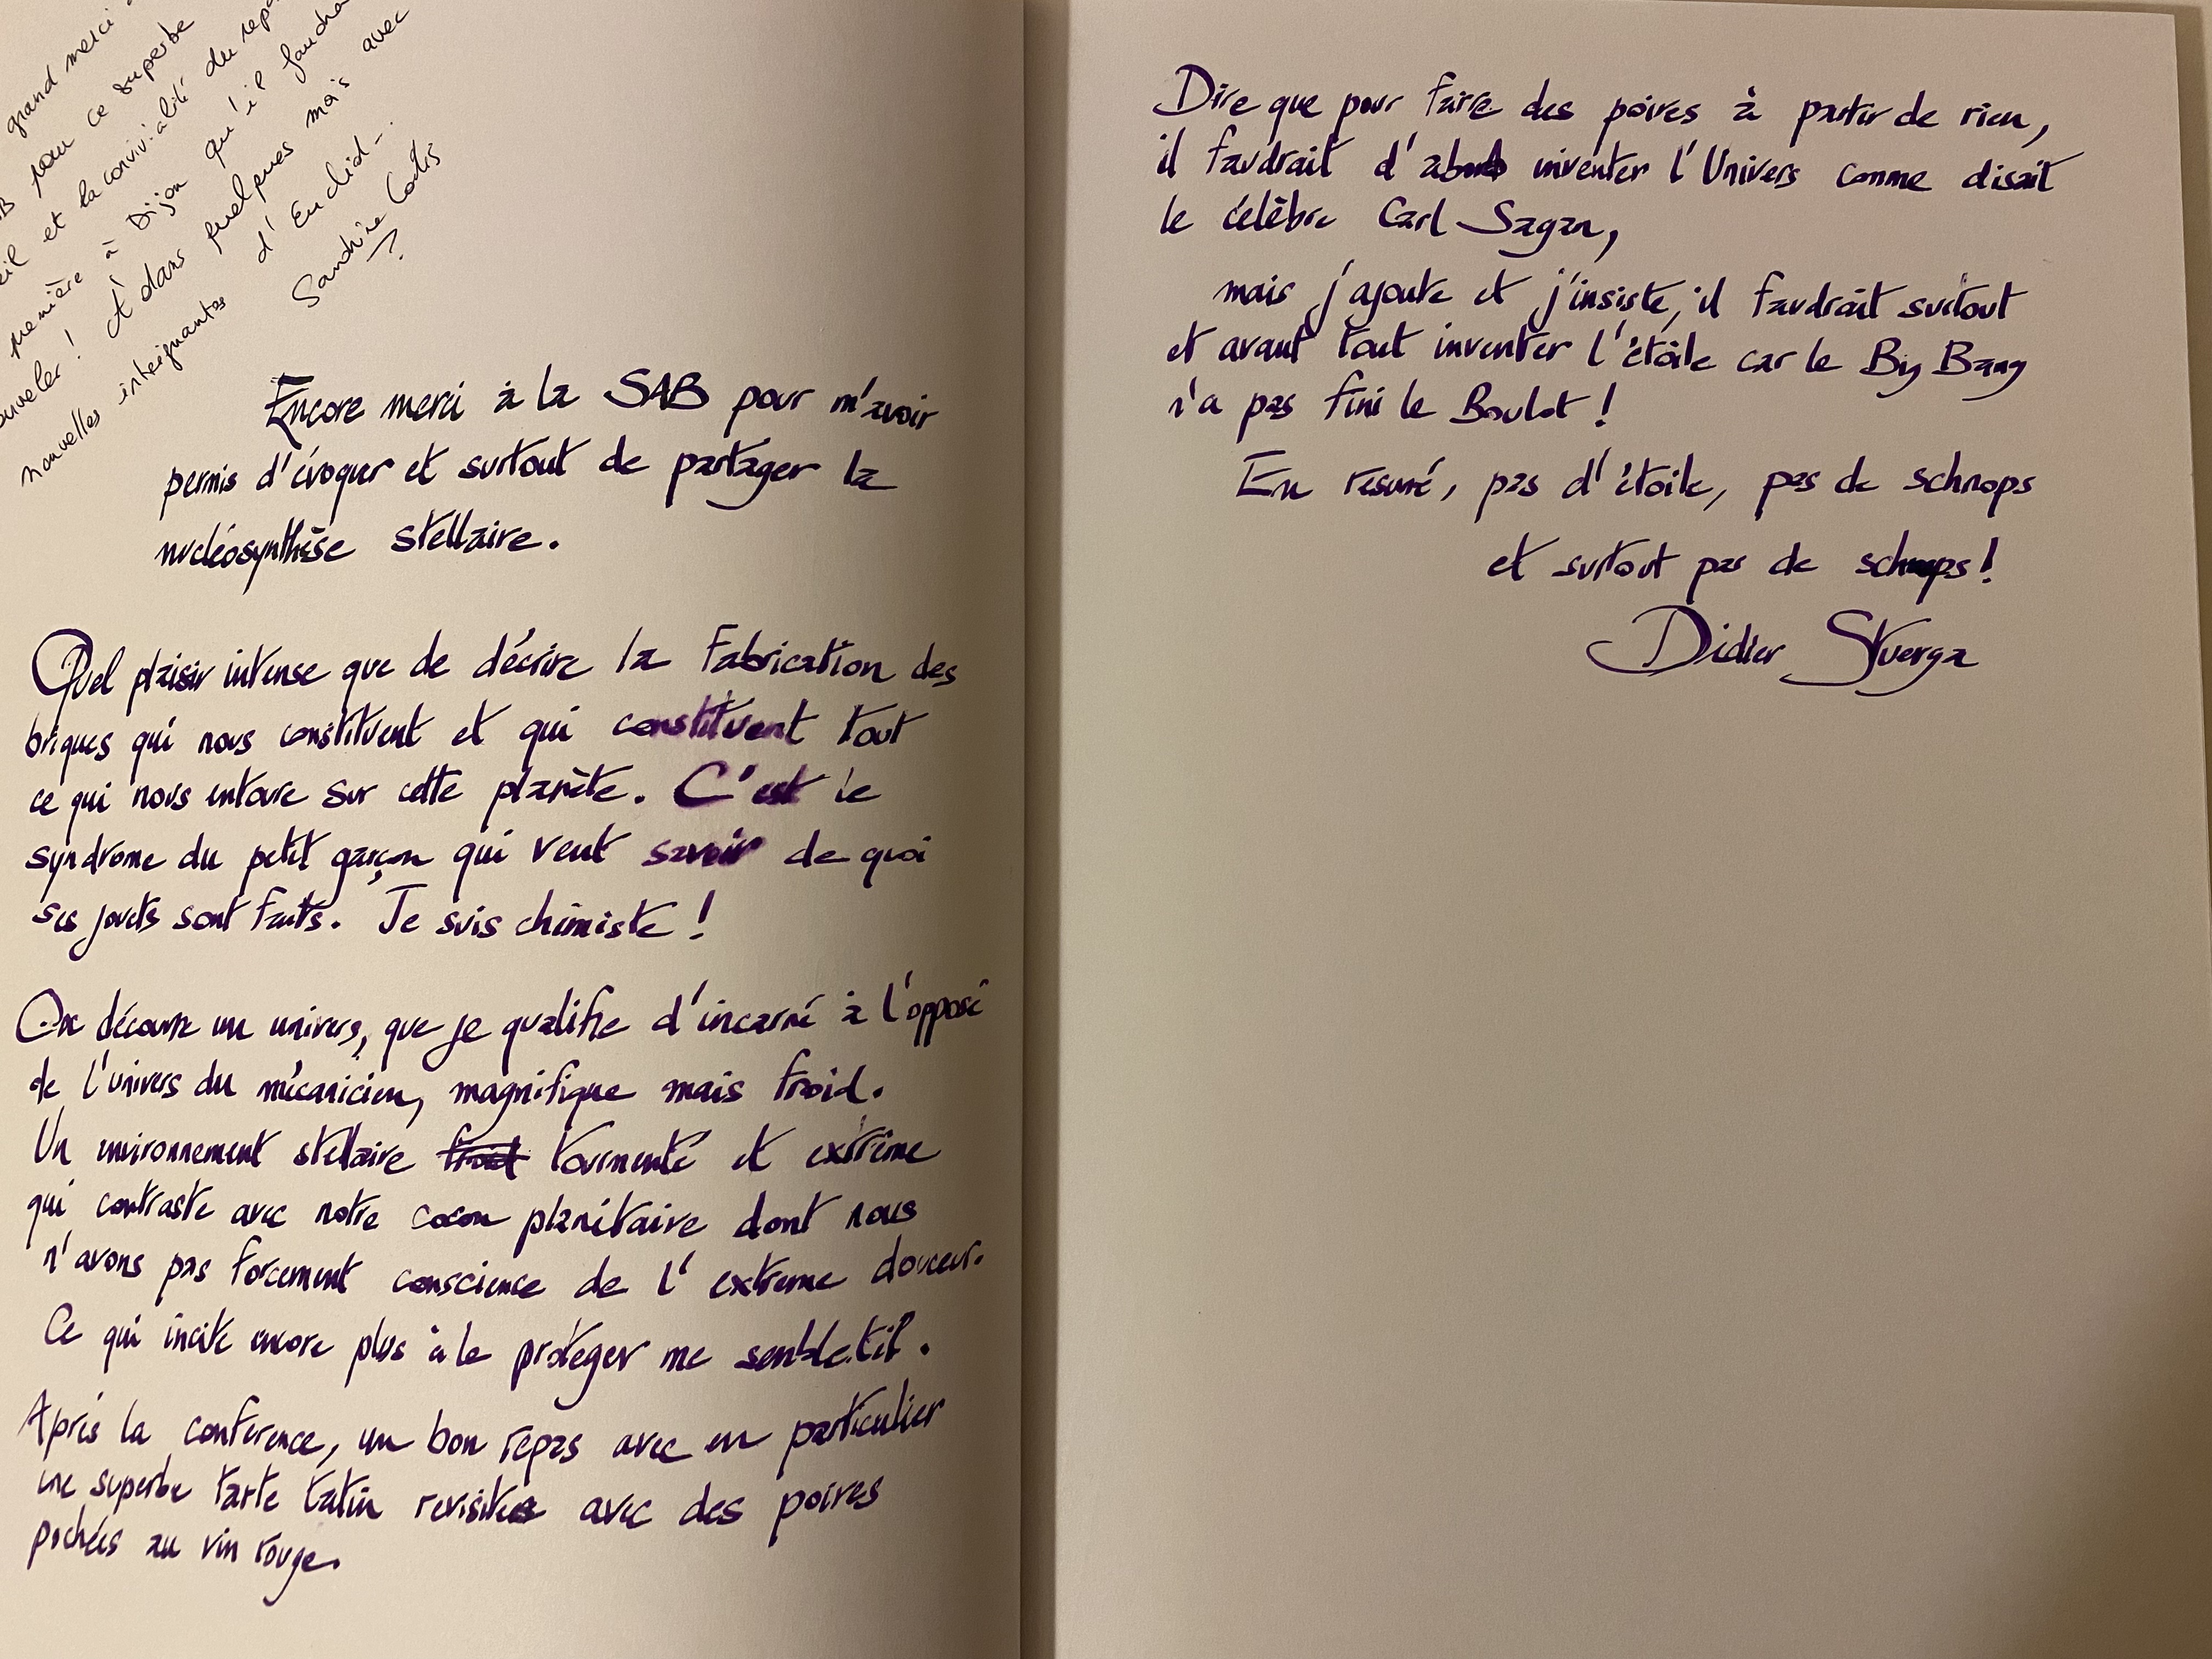 grand merci
pour ce superbe
et la convivialité du
première à Dijon qu'il
! À dans quelques mois avec
nouvelles intrigantes d'Euclid-.
Sandrine Codis
Encore merci à la SAB pour m'avoir
permis d'évoquer et surtout de partager la
nucléosynthèse stellaire.
Quel plaisir intense que de décrire la Fabrication des
briques qui nous constituent et qui constituent tout
ce qui nous entoure sur cette planète. C'est le
syndrome du petit garçon qui veut savoir de quoi
ses jouets sont faits. Je suis chimiste !
On découvre un univers, que je qualifie d'incarné à l'opposé
de l'univers du mécanicien, magnifique mais froid.
Un environnement stellaire froid tourmenté et extrême
qui contraste avec notre cocon planétaire dont nous
n'avons pas forcement conscience de l'extreme douceur.
Ce qui incite encore plus à le protéger me semble.til.
Après la conférence, un bon repas avec en particulier
une superbe tarte tatin revisitée avec des poires
pochées au vin rouge.
Dire que pour faire des poires à partir de rien,
il faudrait d'abord inventer l'Univers comme disait
le célèbre Carl Sagan,
mais j'ajoute et j'insiste, il faudrait surtout
et avant tout inventer l'étoile car le Big Bang
n'a pas fini le Boulot !
En resumé, pas d'étoile, pas de schnops
et surtout pas de schnaps !
Didier Stuerga